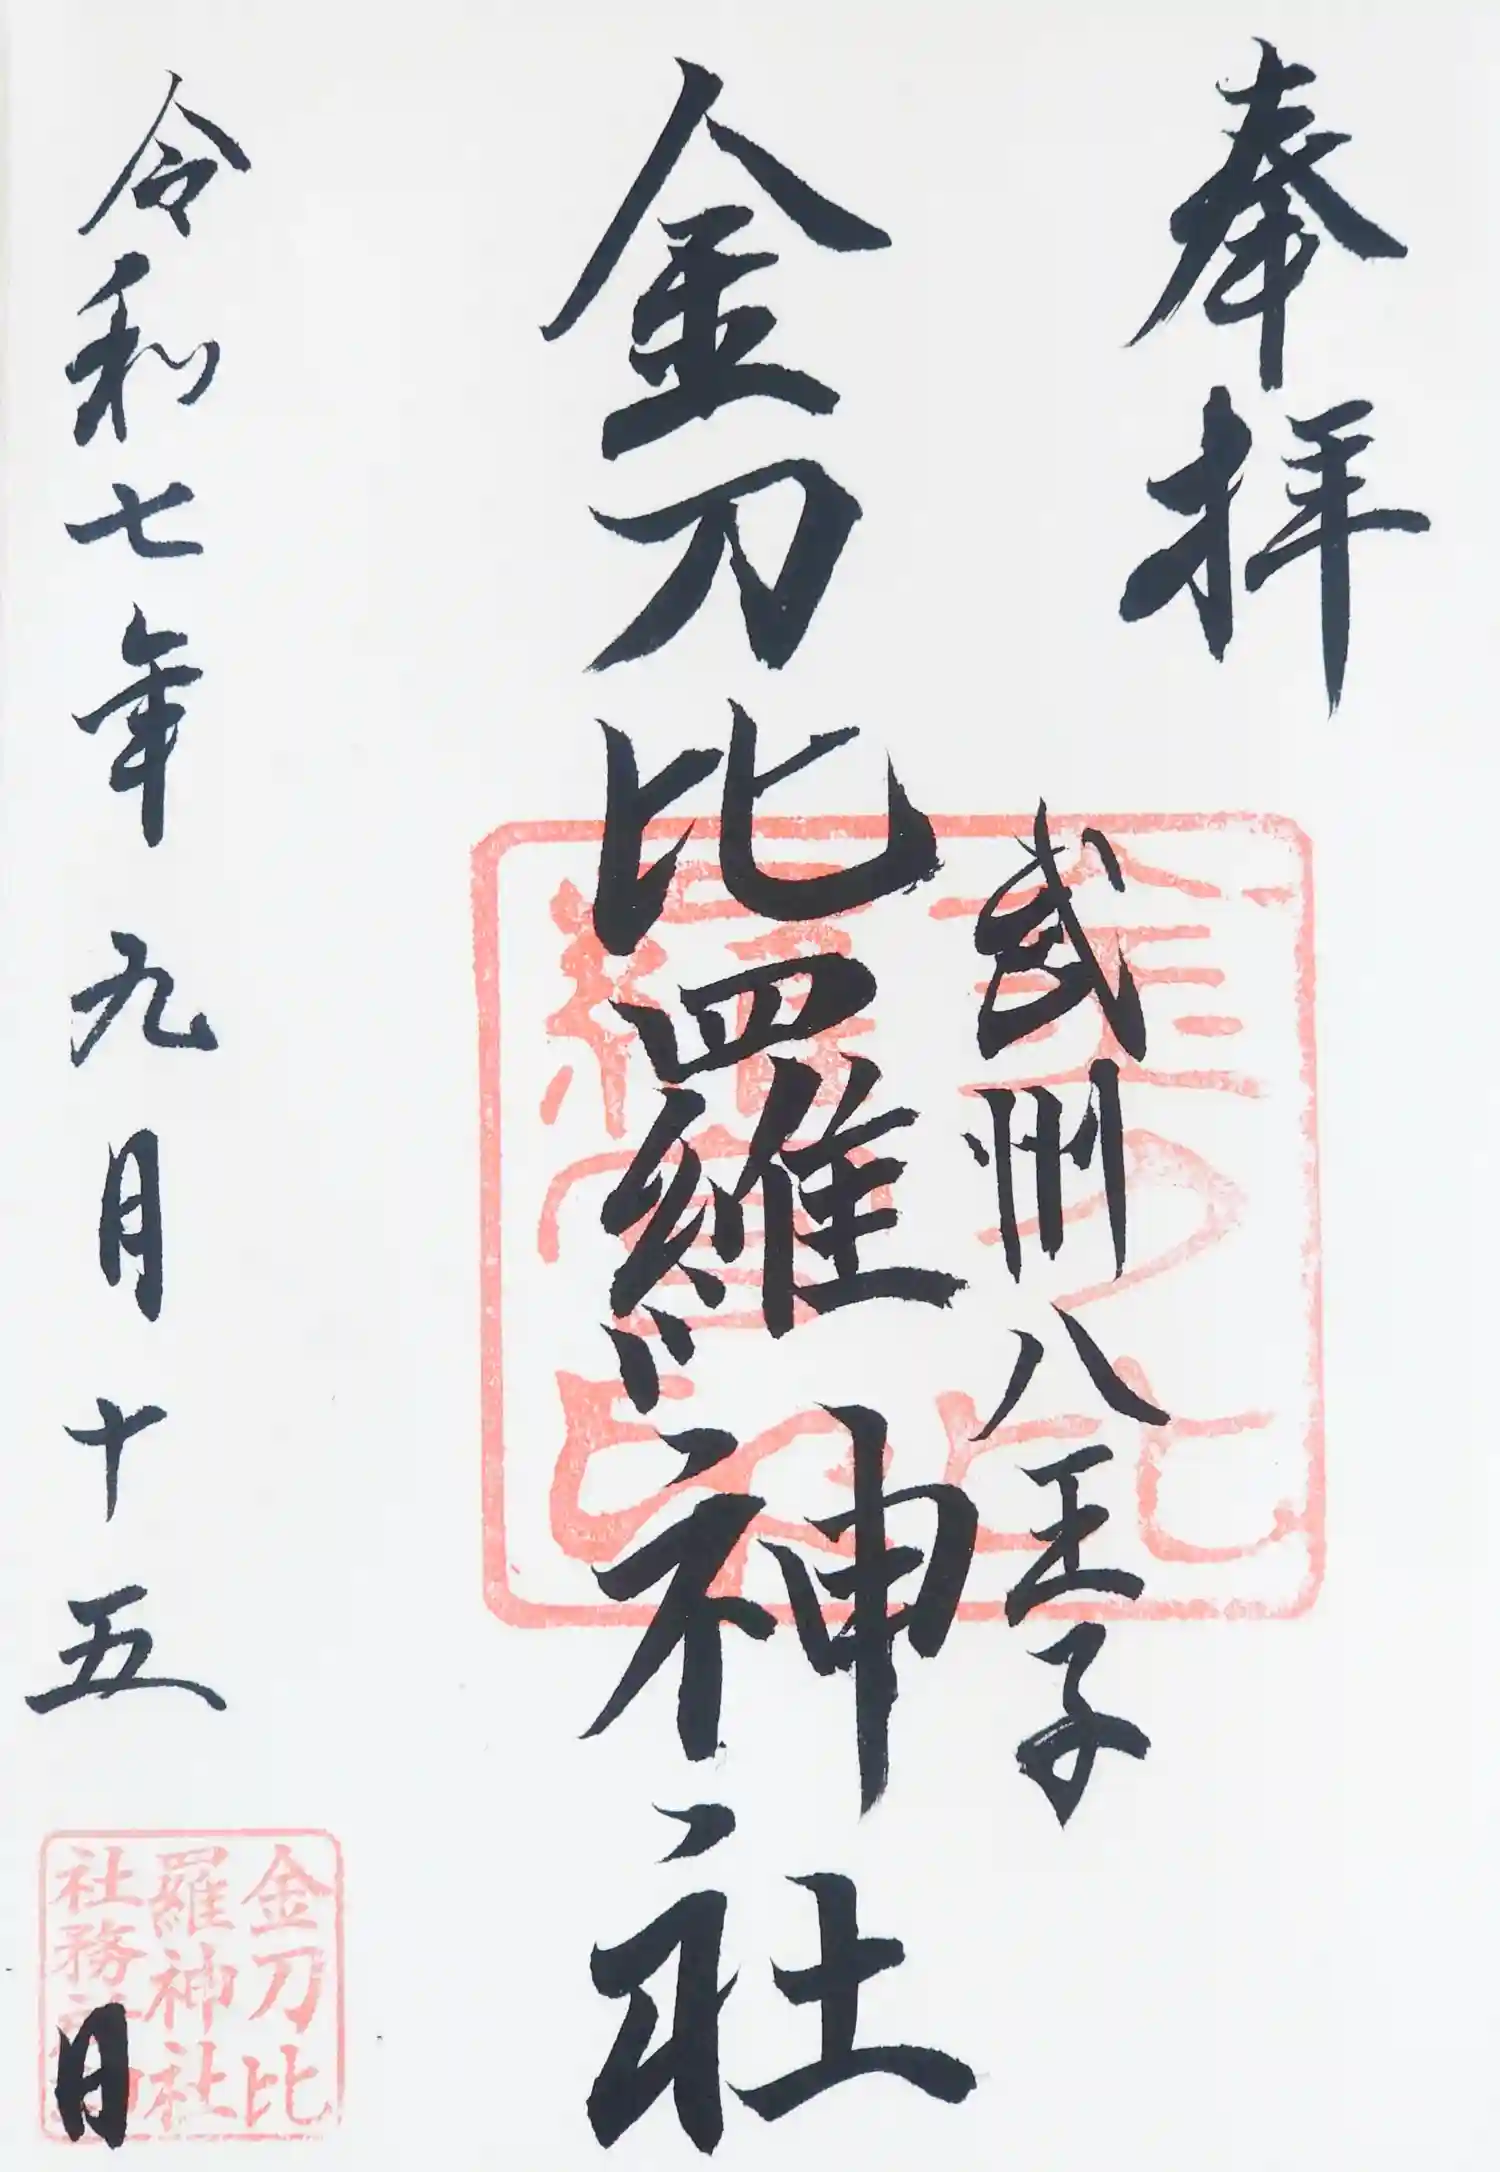 奉拝
武州八王子
金刀比羅神社
令和七年九月十五日
金刀比
羅神社
社務